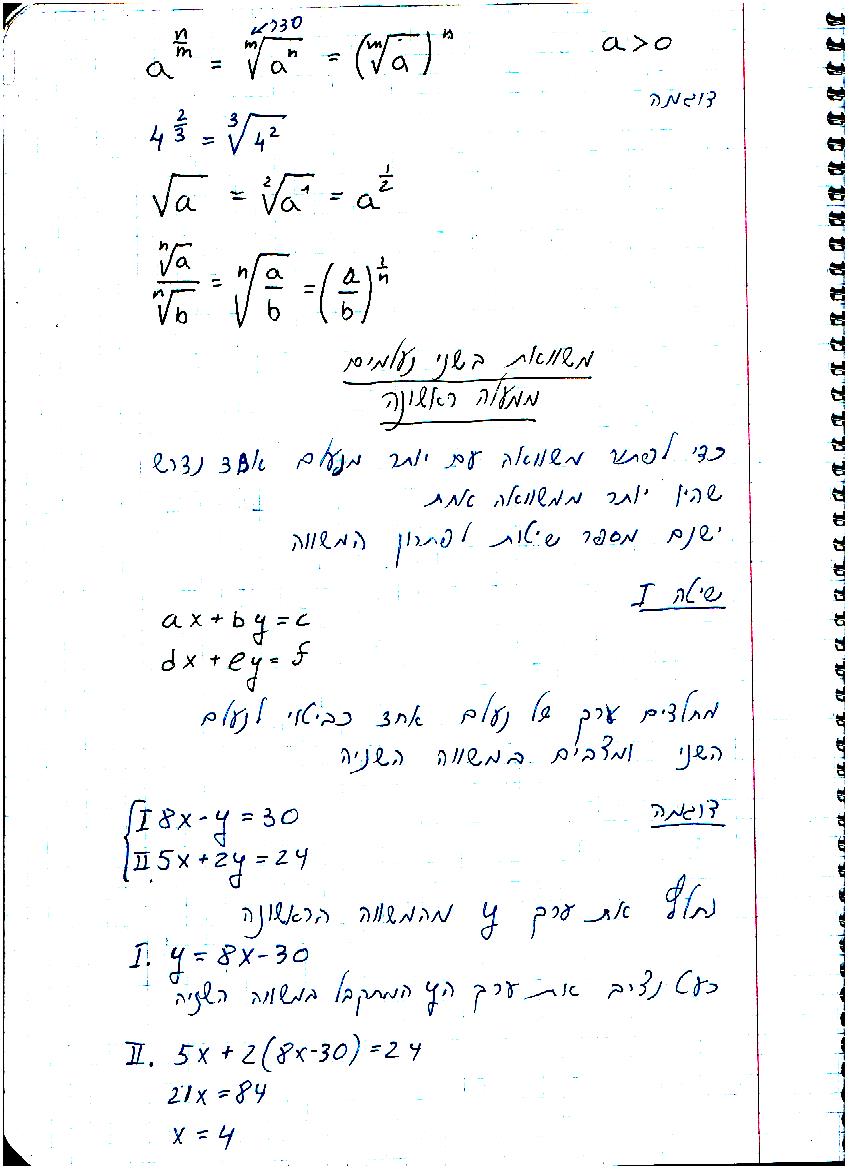 סדר
a^(n/m) = ᵐ√(aⁿ) = (ᵐ√a)ⁿ a>0
דוגמה
4^(2/3) = ³√(4²)
√a = ²√(a¹) = a^(1/2)
ⁿ√a / ⁿ√b = ⁿ√(a/b) = (a/b)^(1/n)
משוואת בשני נעלמים
ממעלה ראשונה
כדי לפתור משוואה עם יותר מנעלם אחד נדרש
שהיו יותר ממשוואה אחת
ישנם מספר שיטות לפתרון המשווה
שיטה I
ax+by=c
dx+ey=f
מחלצים ערך של נעלם אחד כביטוי לנעלם
השני ומצבים במשווה השניה
דוגמה
I 8x-y=30
II 5x+2y=24
נחלץ את ערך y מהמשווה הראשונה
I. y=8x-30
כעט נציב את ערך הy המתקבל במשווה השניה
II. 5x+2(8x-30)=24
21x=84
x=4